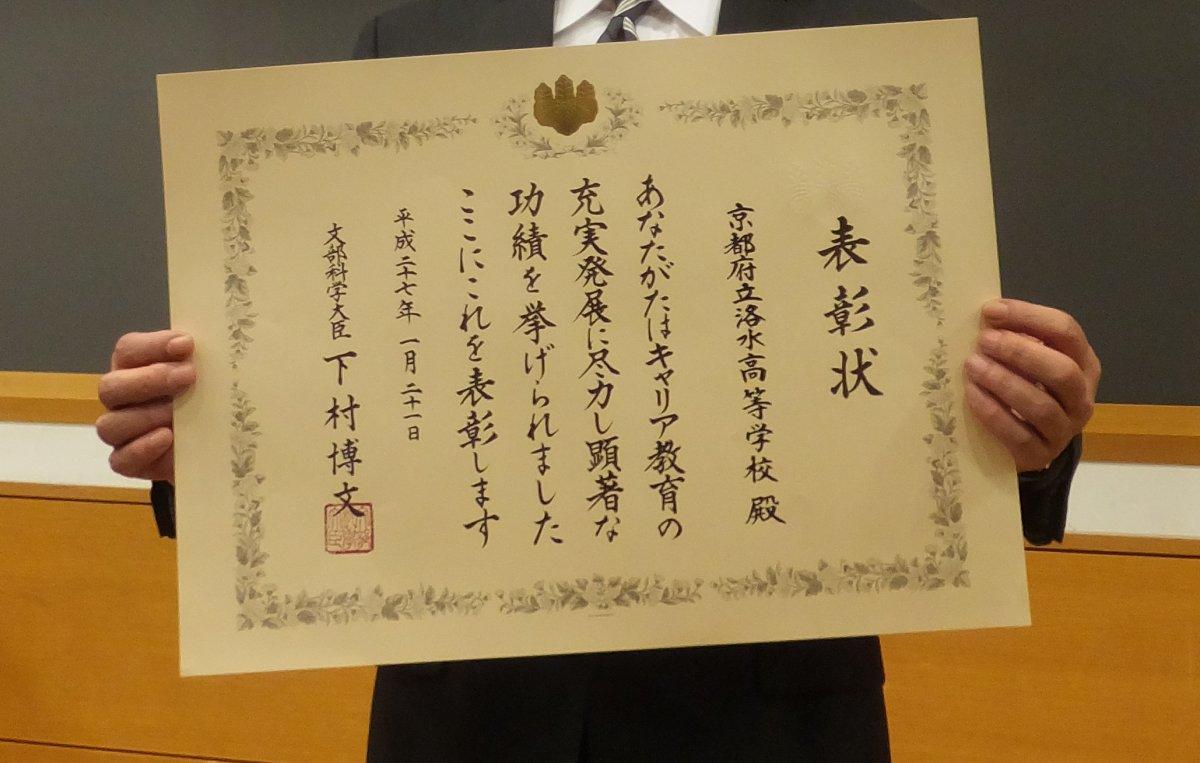 表彰状
京都府立洛水高等学校 殿
あなたがたはキャリア教育の
充実発展に尽力し顕著な
功績を挙げられました
ここにこれを表彰します
平成二十七年一月二十一日
文部科学大臣 下村博文